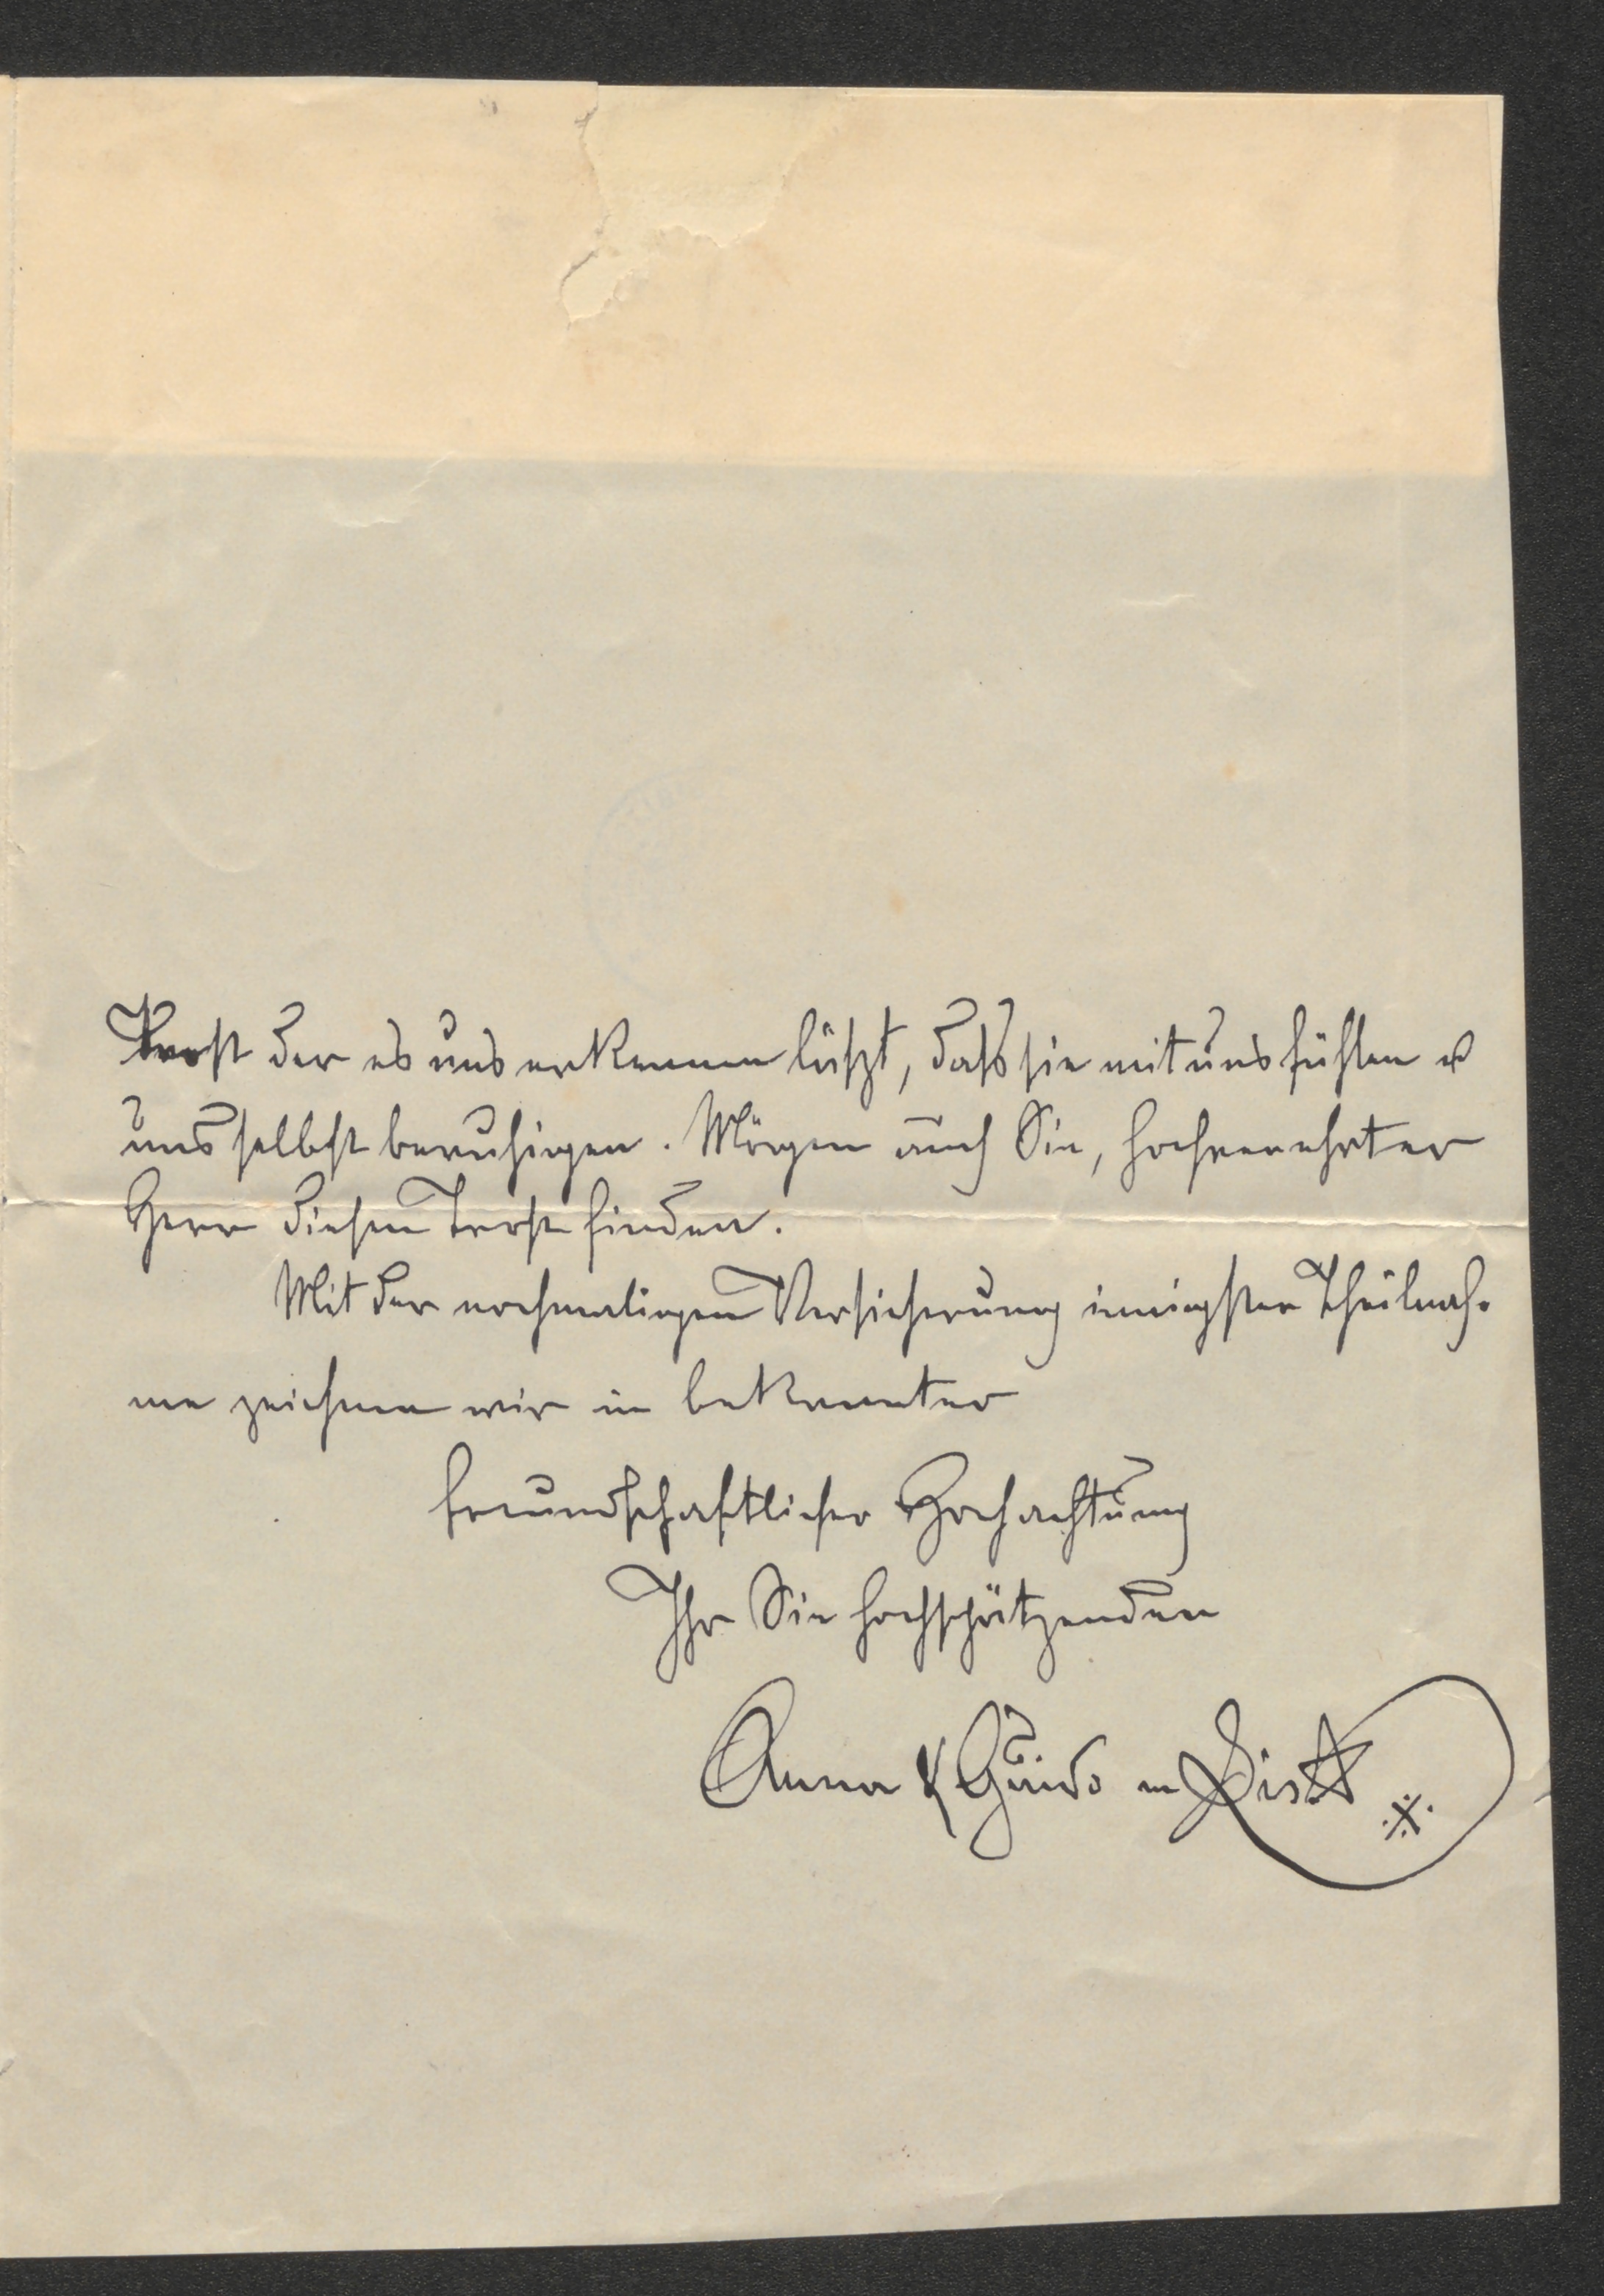 Trost der es uns erkennen läßt, daß sie mit uns fühlen u
uns selbst beruhigen. Mögen auch Sie, hochverehrter
Herr diesen Trost finden.
Mit der nochmaligen Versicherung innigster Theilnah-
me zeichnen wir in bekannter
freundschaftlicher Hochachtung
Ihr Sie hochschätzenden
Anna & Guido v List